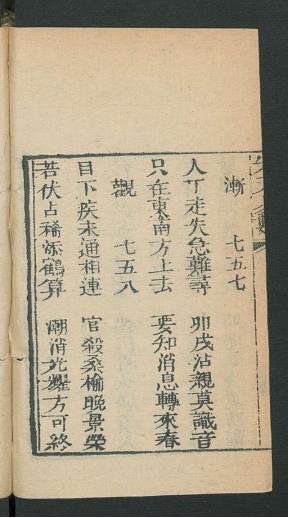 漸　七五七
人丁走失急難尋　卯戌沾親莫識音
只在東南方上去　要知消息轉來春
觀　七五八
目下疾未通相連　官殺桑榆晚景榮
若伏占稀添鶴算　潮消光耀方可終